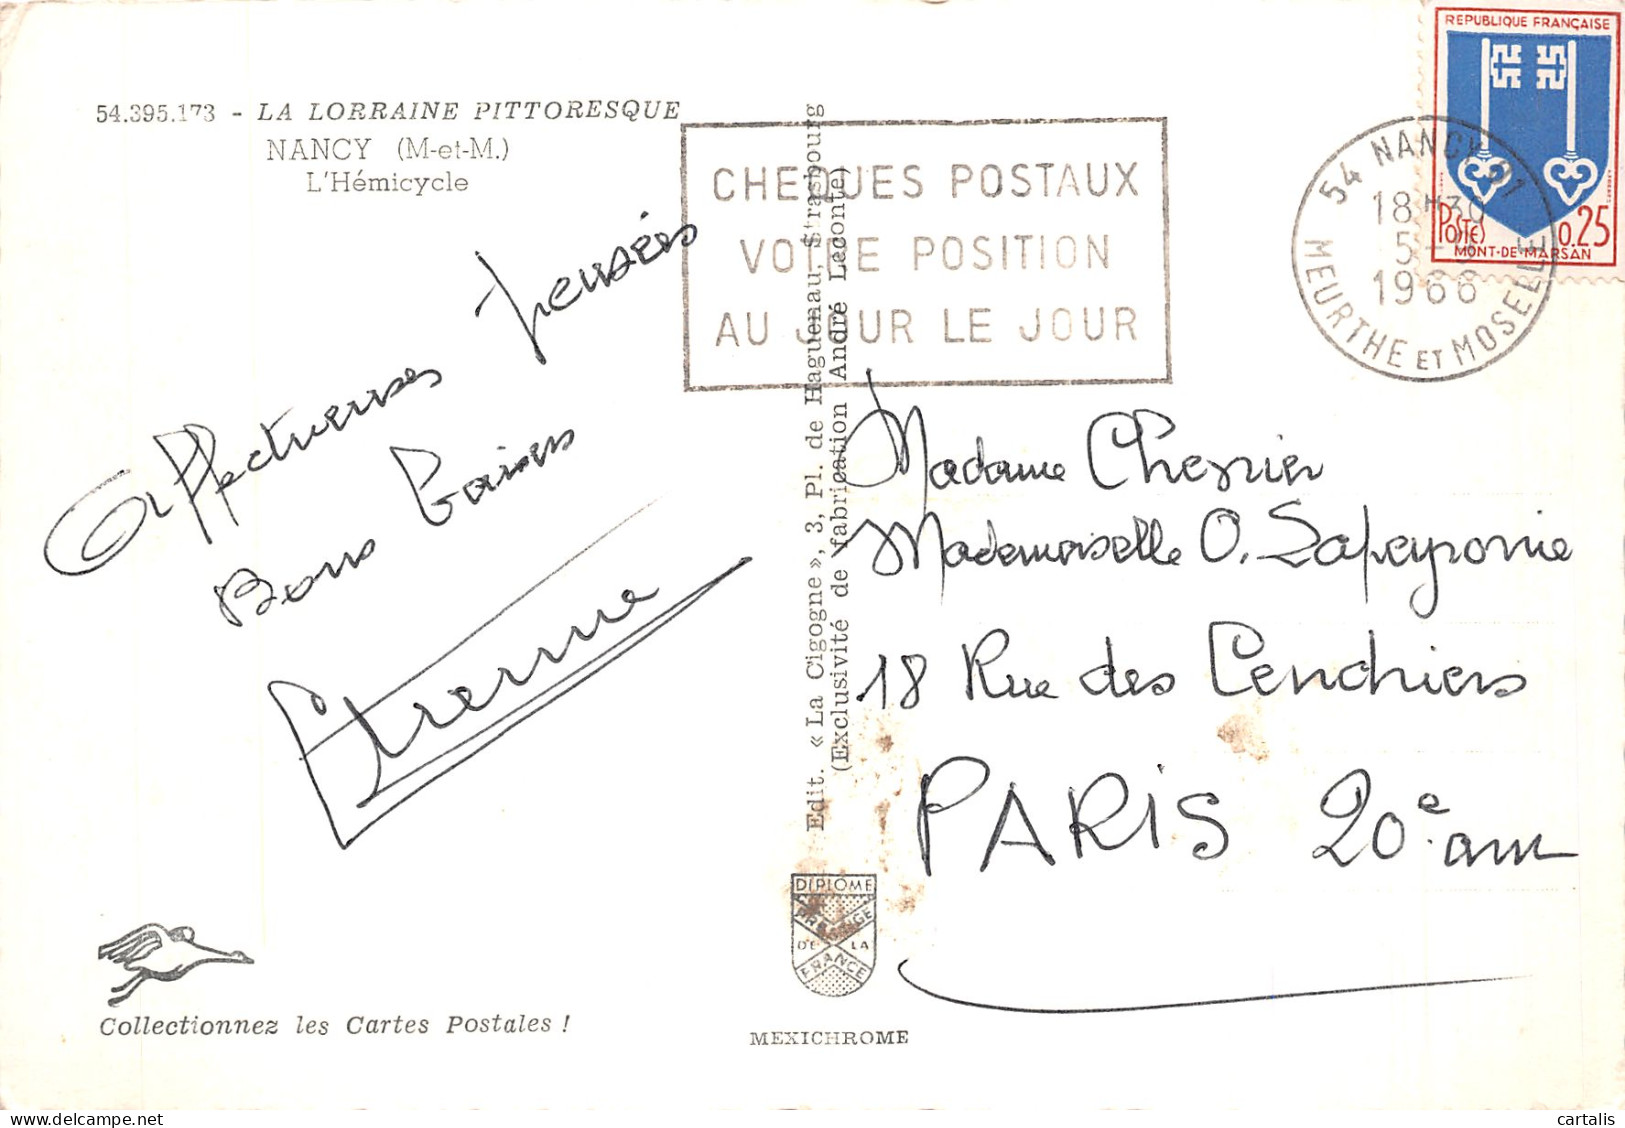 54.395.173 - LA LORRAINE PITTORESQUE
NANCY (M-et-M.)
L'Hémicycle
Affectueuses pensées
Bons baisers
Etienne
Collectionnez les Cartes Postales !
Edit. « La Cigogne », 3, Pl. de Haguenau, Strasbourg
(Exclusivité de fabrication André Leconte)
DIPLOME
PRESTIGE
DE LA
FRANCE
MEXICHROME
CHEQUES POSTAUX
VOTRE POSITION
AU JOUR LE JOUR
54 NANCY 01
18H30
5-
1966
MEURTHE ET MOSELLE
REPUBLIQUE FRANÇAISE
POSTES
0,25
MONT-DE-MARSAN
Madame Chesnier
Mademoiselle O. Lapeyronie
18 Rue des Cendriers
PARIS 20e arr
cartalis